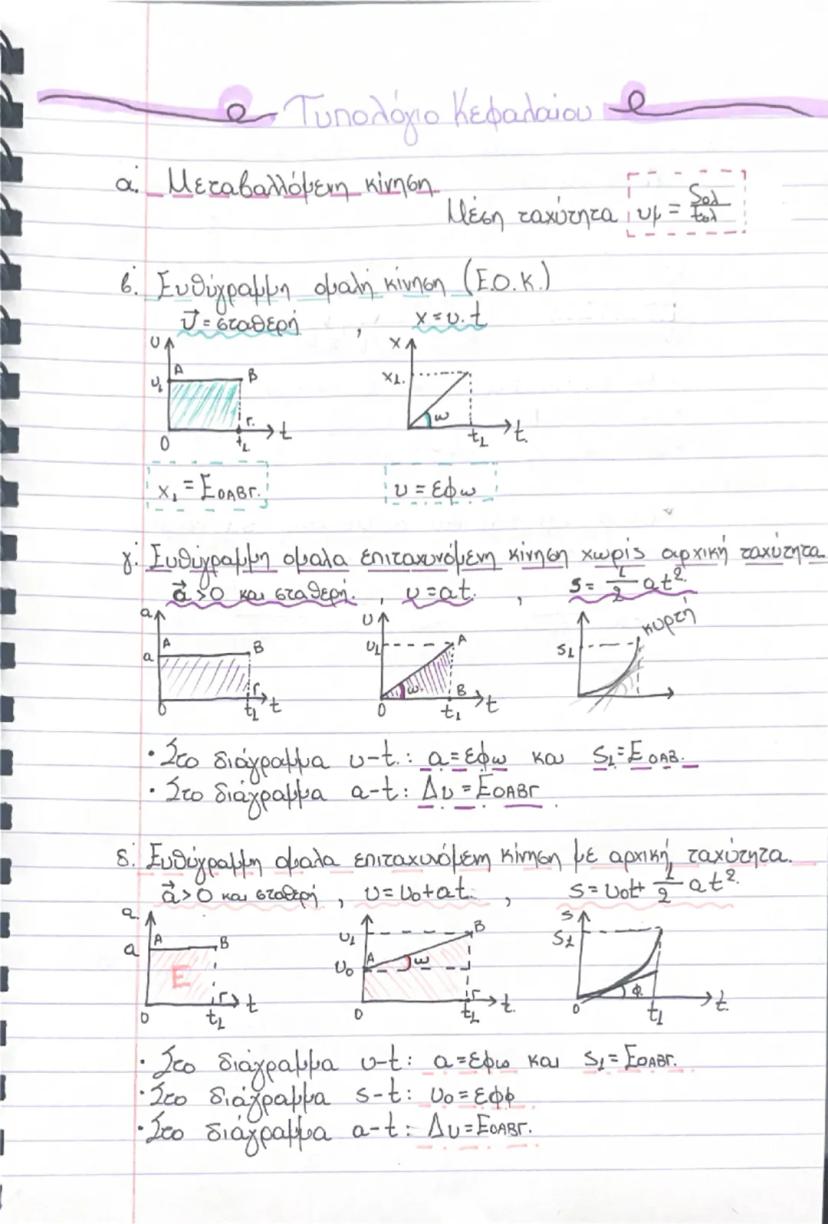 Τυπολόγιο Κεφαλαίου
α. Μεταβαλλόμενη κίνηση
Μέση ταχύτητα υμ = Sολ/tολ
β. Ευθύγραμμη ομαλή κίνηση (Ε.Ο.Κ.)
υ⃗ = σταθερή , x = υ.t
υ υ₁ A B Γ 0 t₁ t
x x₁ ω t₁ t
x₁ = ΕΟΑΒΓ. υ = εφω
γ. Ευθύγραμμη ομαλα επιταχυνόμενη κίνηση χωρίς αρχική ταχύτητα
a⃗>0 και σταθερή. , υ=at. , s= 1/2 at².
a a A B Γ 0 t₁ t
υ υ₁ A ω B 0 t₁ t
S₁ κυρτή
• Στο διάγραμμα υ-t.: a=εφω και S₁=ΕΟΑΒ.
• Στο διάγραμμα a-t: Δυ=ΕΟΑΒΓ
δ. Ευθύγραμμη ομαλα επιταχυνόμενη κίνηση με αρχική ταχύτητα.
a⃗>0 και σταθερή , υ=υ₀+at. , s=υ₀t+ 1/2 at².
a a A B E Γ 0 t₁ t
υ υ₁ υ₀ A B ω Γ 0 t₁ t
s S₁ φ 0 t₁ t
• Στο διάγραμμα υ-t: a=εφω και S₁=ΕΟΑΒΓ.
• Στο διάγραμμα s-t: υ₀=εφφ
• Στο διάγραμμα a-t: Δυ=ΕΟΑΒΓ.